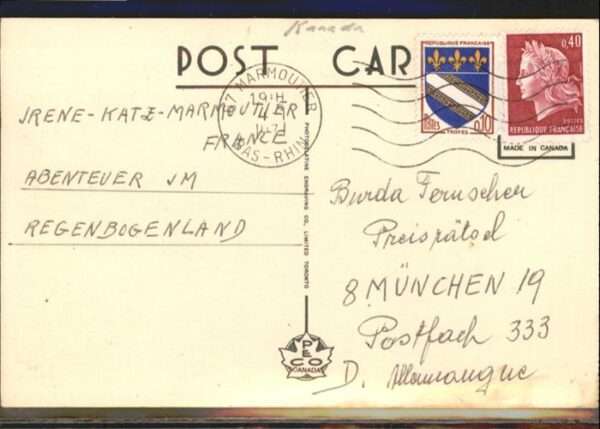 Kanada
POST CAR
RÉPUBLIQUE FRANÇAISE
POSTES
TROYES
0,10
0,40
POSTES
REPUBLIQUE FRANÇAISE
MADE IN CANADA
67 MARMOUTIER
19 H
BAS-RHIN
IRENE-KATZ-MARMOUTIER
FRANCE
ABENTEUER JM
REGENBOGENLAND
PHOTOGELATINE ENGRAVING CO. LIMITED TORONTO
PECO
CANADA
Burda Fernseher
Preisrätsel
8 MÜNCHEN 19
Postfach 333
D. Allemangue